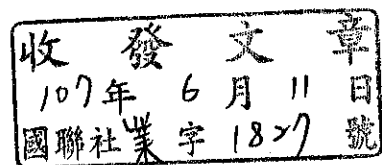 收發文章
107年6月11日
國聯社業字1827號